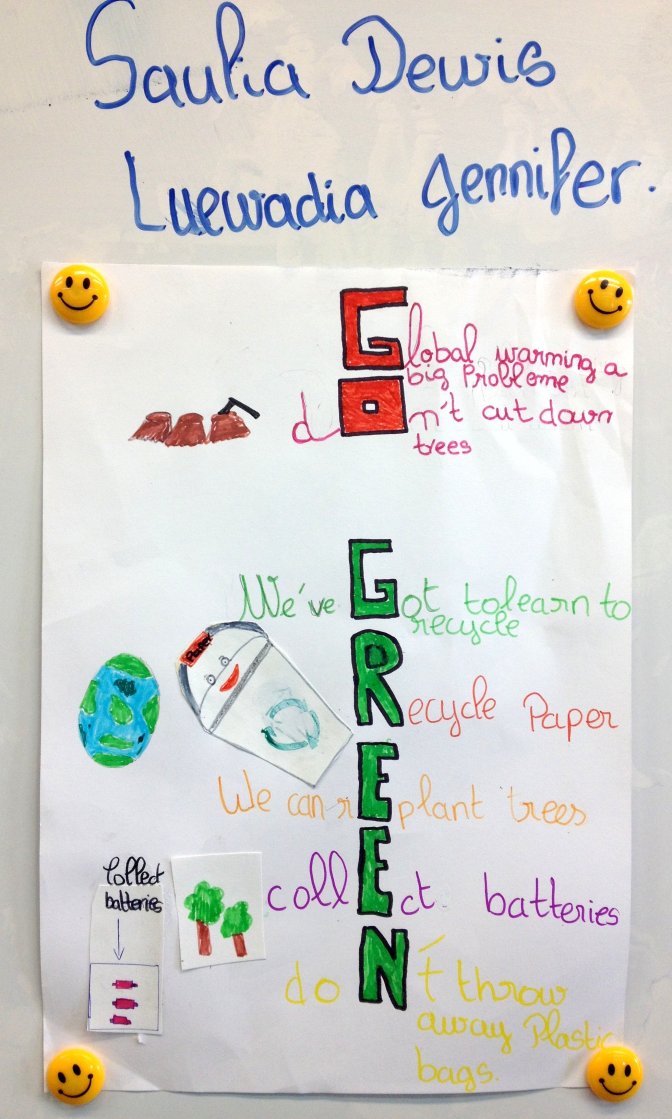 Saulia Dewis
Luewadia Jennifer.
Global warming a
big Probleme
don't cut down
trees
We've Got to learn to
recycle
Recycle Paper
We can rEplant trees
collEct batteries
doN't throw
away Plastic
bags.
Collect
batteries